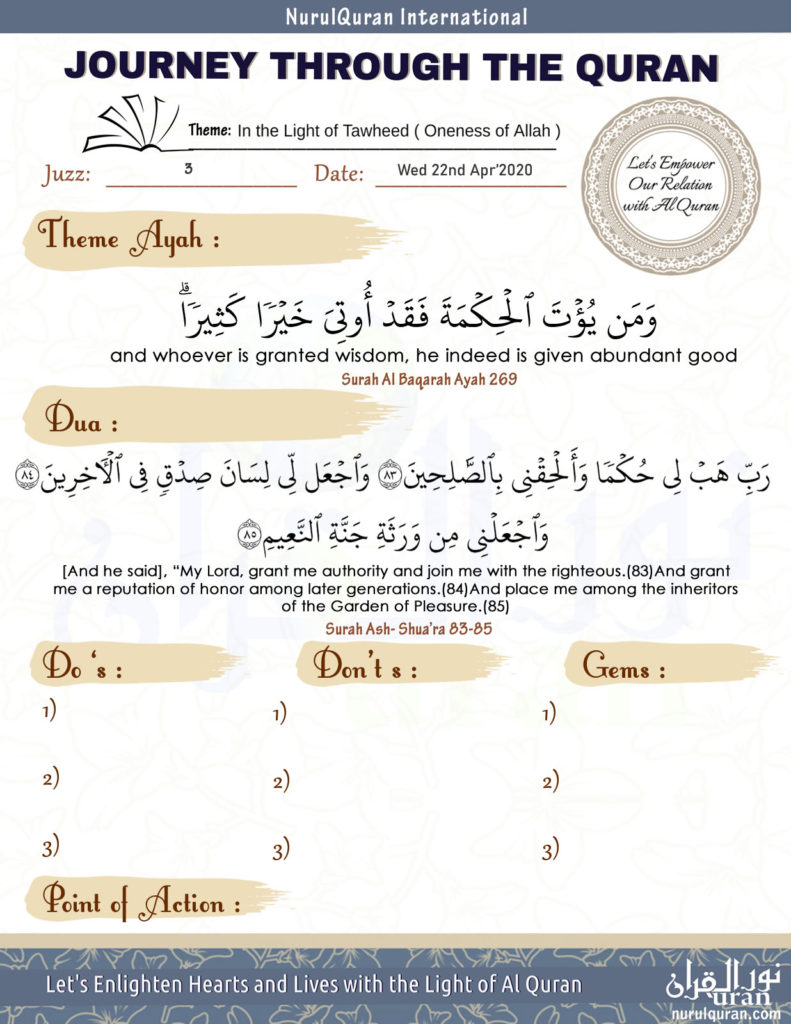 NurulQuran International
JOURNEY THROUGH THE QURAN
Theme: In the Light of Tawheed ( Oneness of Allah )
Juzz: 3 Date: Wed 22nd Apr'2020
Let's Empower
Our Relation
with Al Quran
Theme Ayah :
وَمَن يُؤْتَ ٱلْحِكْمَةَ فَقَدْ أُوتِىَ خَيْرًا كَثِيرًا ۗ
and whoever is granted wisdom, he indeed is given abundant good
Surah Al Baqarah Ayah 269
Dua :
رَبِّ هَبْ لِى حُكْمًا وَأَلْحِقْنِى بِٱلصَّٰلِحِينَ ٨٣ وَٱجْعَل لِّى لِسَانَ صِدْقٍ فِى ٱلْءَاخِرِينَ ٨٤
وَٱجْعَلْنِى مِن وَرَثَةِ جَنَّةِ ٱلنَّعِيمِ ٨٥
[And he said], “My Lord, grant me authority and join me with the righteous.(83)And grant
me a reputation of honor among later generations.(84)And place me among the inheritors
of the Garden of Pleasure.(85)
Surah Ash- Shua’ra 83-85
Do ‘s : Don’t s : Gems :
1) 1) 1)
2) 2) 2)
3) 3) 3)
Point of Action :
Let's Enlighten Hearts and Lives with the Light of Al Quran
نور القرآن
uran
nurulquran.com